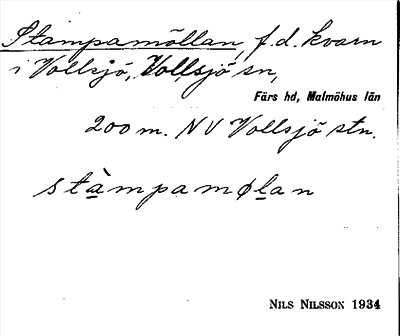 Stampamöllan, f.d. kvarn
i Vollsjö, Vollsjö sn,
Färs hd, Malmöhus län
200 m. NV Vollsjö stn.
stàmpamøl̲an
NILS NILSSON 1934